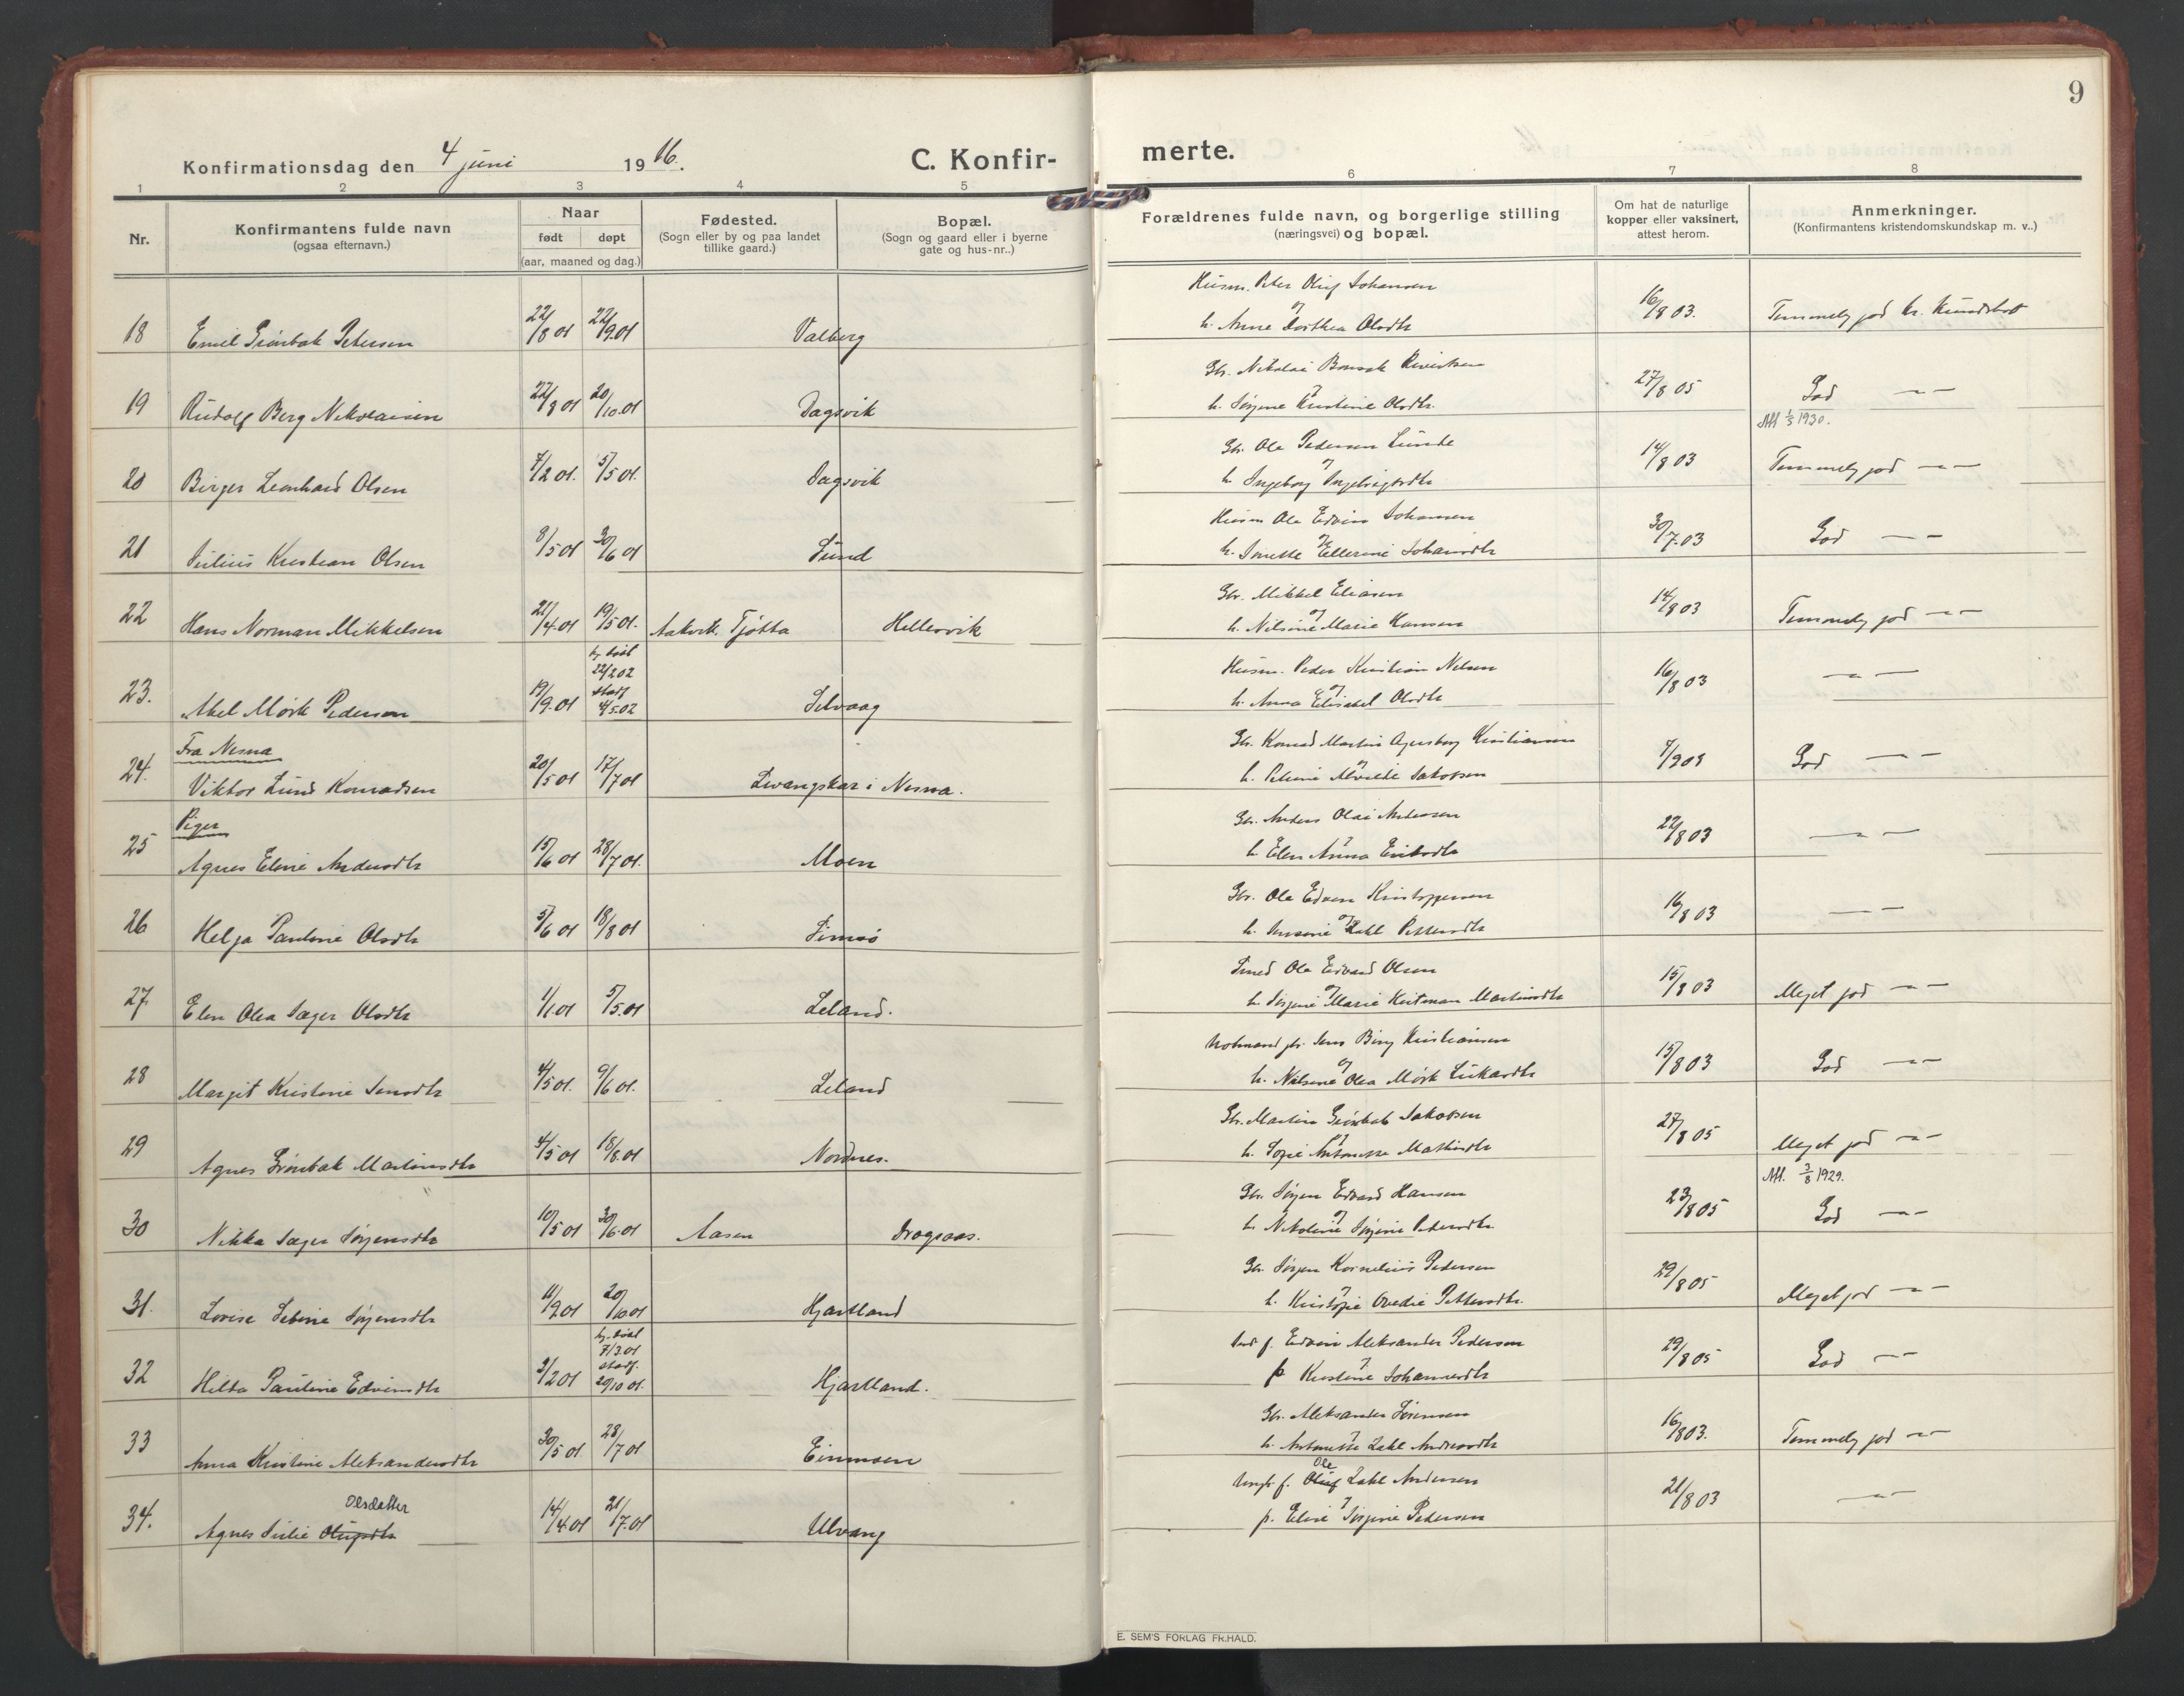 9
Konfirmationsdag den 4 juni 1916.
C. Konfir-merte.
1 2 3 4 5 6 7 8
Nr.
Konfirmantens fulde navn
(ogsaa efternavn.)
Naar
født døpt
(aar, maaned og dag.)
Fødested.
(Sogn eller by og paa landet
tillike gaard.)
Bopæl.
(Sogn og gaard eller i byerne
gate og hus-nr..)
Forældrenes fulde navn, og borgerlige stilling
(næringsvei) og bopæl.
Om hat de naturlige
kopper eller vaksinert,
attest herom.
Anmerkninger.
(Konfirmantens kristendomskundskap m. v..)
Husm. Peter Oluf Johansen
og
18 Emil Grönbæk Petersen 22/8 01 22/9.01 Valberg h. Anne Dorthea Olsdtr 16/8 03. Temmelig god kr. kundskab
Gbr. Nikolai Bonsak
19 Rudolf Berg Nikolaisen 22/8 01 20/10.01 Dagsvik h. Jørgine Kristine Olsdtr. 27/8 05 God — " —
Att 1/5 1930.
Gbr. Ole Pedersen Lunde
og
20 Birger Leonhard Olsen 7/2 01. 5/5 01. Dagsvik h. Ingeborg Ingebrigtsdtr 14/8 03 Temmelig god — " —
Husm Ole Edvin Johansen
og
21 Julius Kristian Olsen 8/5 01 30/6 01 Lund h. Ellerine Johansdtr 30/7.03 God — " —
Gbr. Mikkel Eliasen
og
22 Hans Norman Mikkelsen 21/4.01 19/5 01. Aakvik. Tjøtta Hellesvik h. Nilsine Marie Hansen 14/8 03 Temmelig god — " —
hj. døbt
22/2 02
stadf
4/5.02
Husm. Peder Kristian Nilsen
og
23. Abel Mörk Pedersen 19/9.01 Selvaag h. Anna Elisabet Olsdtr 16/8 03 — " —
Fra Nesna
Gbr. Konrad Martin Kristiansen
24. Viktor Lund Konradsen 20/5 01 17/7 01 i Nesna. h. Petrine Alvilde Jakobsen God — " —
Piger
Gbr. Anders Olai Andersen
25 Agnes Eline Andersdtr 15/6 01 28/7 01. Moen h. Elen Anna Eriksdtr 22/8 03 — " —
Gbr. Ole Edvin Kristoffersen
og
26 Helga Pauline Olsdtr 5/6 01 18/8 01 h. Zahl Pettersdtr 16/8 03 — " —
Smed Ole Edvard Olsen
og
27. Elen Olea Sæger Olsdtr 1/1 01 5/5.01 Leland. h. Jørgine Marie Martinsdtr 15/8 03 Meget god — " —
Jens Berg Kristiansen
og
28 Margit Kristine Jensdtr 4/5 01. 9/6 01. Leland h. Nilsine Olea Mörk Lukasdtr 15/8 03 God — " —
Gbr. Martin Grönbæk Jakobsen
29 Agnes Grönbæk Martinsdtr 4/5 01 18/8.01 Nordnes. h. Sofie Antonette Mathisdtr 27/8 05 Meget god — " —
Att. 3/8 1929.
Gbr. Jørgen Edvard Hansen
og
30 Nikka Sæger Jørgensdtr 10/5 01 30/6.01 Aasen Dragsaas. h. Nikoline Jørgine Petersdtr. 23/8 05 God — " —
Gbr. Jørgen Kornelius Pedersen
31. Lovise Sebine Jørgensdtr 11/9 01 20/10 01 Hjartland h. Kristofie Ovedie Pettersdtr. 29/8 05 Meget god — " —
hj. døbt
7/3.01
stadf.
20/10 01.
f. Edvin Aleksander Pedersen
32 Hilda Pauline Edvinsdtr 3/2 01 Hjartland. p Kristine Johannesdtr 29/8 05 God — " —
Gbr. Aleksander Sörensen
33 Anna Kristine Aleksandersdtr 30/5 01. 28/7 01 Einmoen h. Antonette Zahl Andreasdtr 16/8 03. Temmelig god — " —
Olsdatter
Ole
Ungk. f. Oluf Zahl Andersen
34. Agnes Julie Olufsdtr 14/4 01 21/7.01 Ulvang p. Eline Jørgine Pedersen 21/8 03 — " —
E. SEM'S FORLAG FR.HALD.